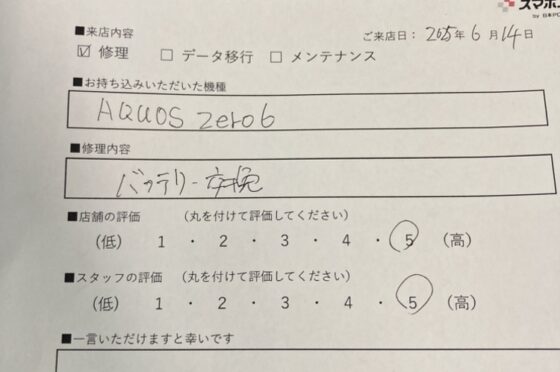 スマホス
by 日本PC
■来店内容
ご来店日: 2025年 6月 14日
☑ 修理 □ データ移行 □ メンテナンス
■お持ち込みいただいた機種
AQUOS zero6
■修理内容
バッテリー交換
■店舗の評価 (丸を付けて評価してください)
(低) 1 ・ 2 ・ 3 ・ 4 ・ 5 (高)
■スタッフの評価 (丸を付けて評価してください)
(低) 1 ・ 2 ・ 3 ・ 4 ・ 5 (高)
■一言いただけますと幸いです